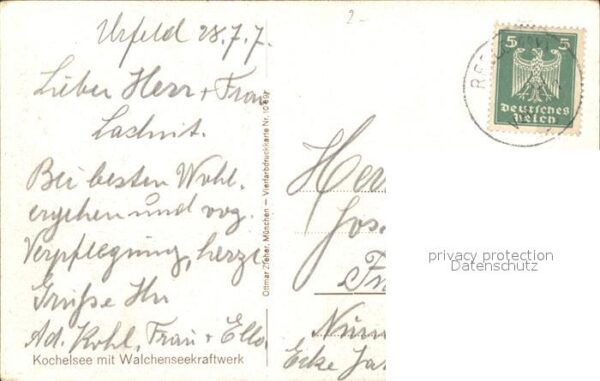 Urfeld 28.7.7.
Lieber Herr + Frau
Lachnit.
Bei besten Wohl,
ergehen und vog
Verpflegung, herzl
Grüße Ihr
Ad. Kohl, Frau + Ella.
Kochelsee mit Walchenseekraftwerk
Ottmar Zieher, München — Vierfarbdruckkarte Nr.
2-
5 5
Deutsches
Reich
Her
Jos
Fr
Nürn
Ecke Ja
privacy protection
Datenschutz